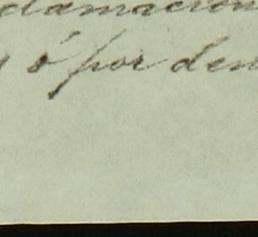 clamacion
y ó por den